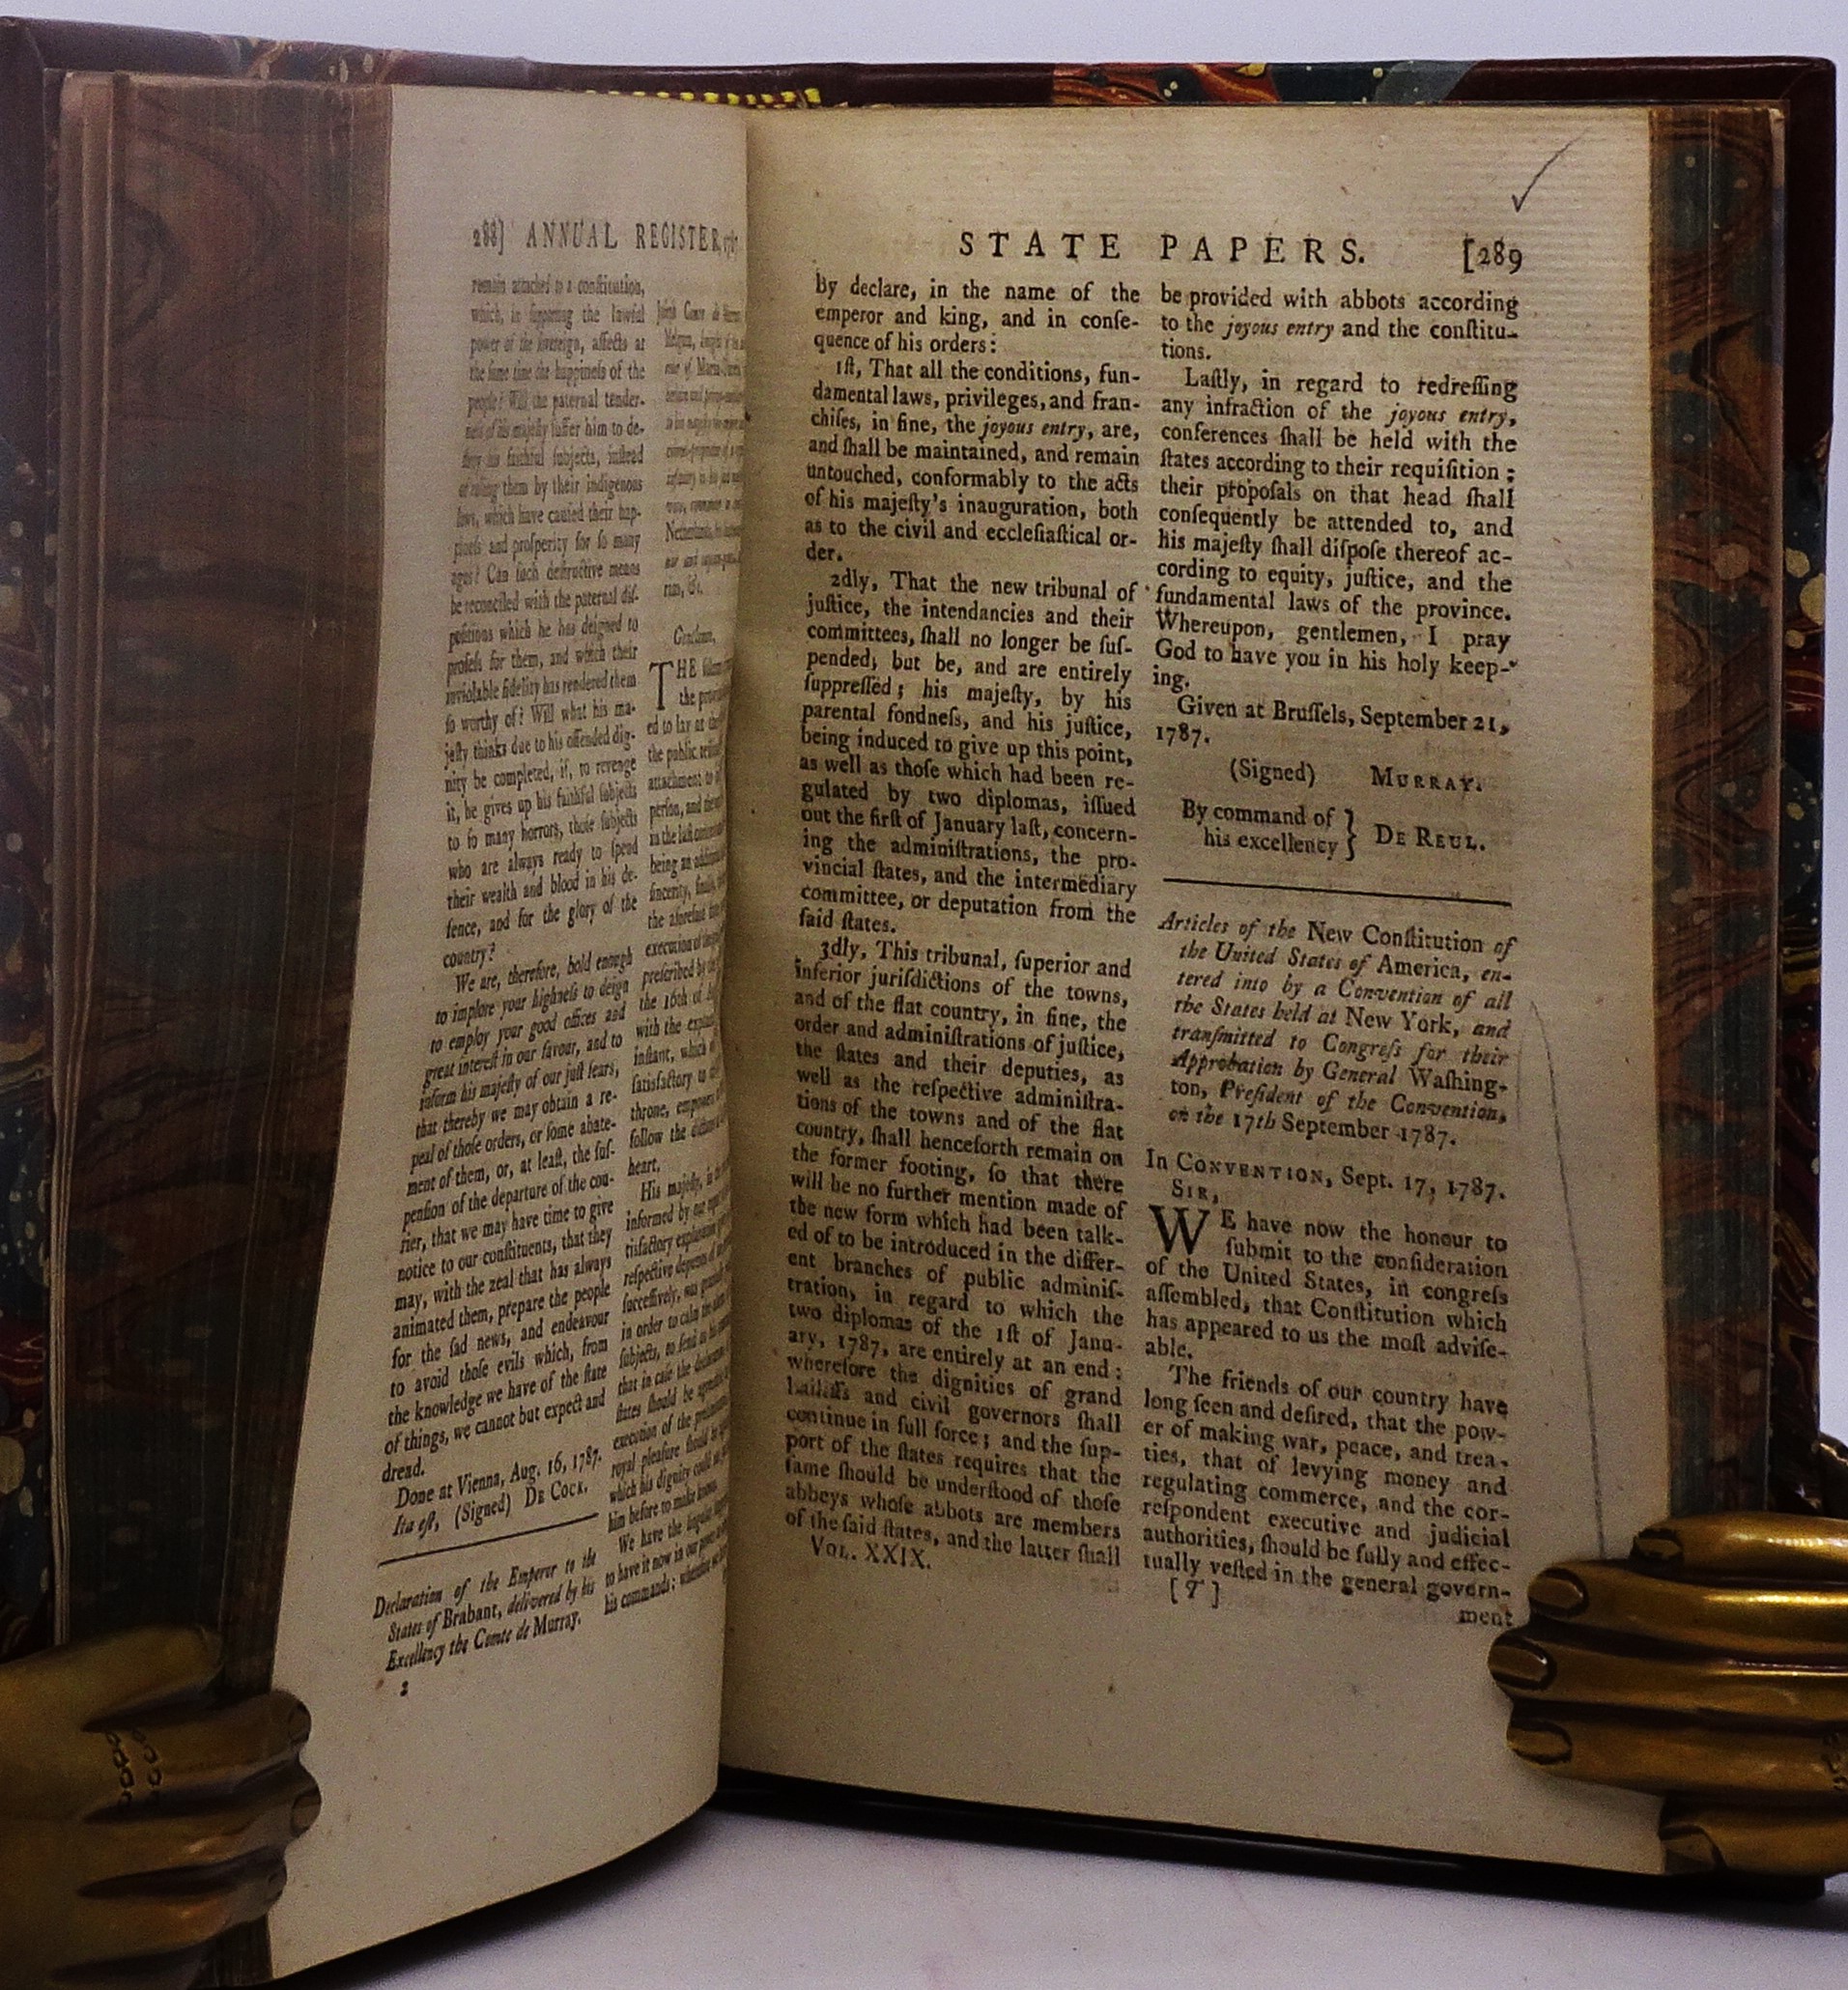 288] ANNUAL REGISTER, 1787
remain attached to a conſtitution,
which, in ſupporting the lawful
power of the ſovereign, affects at
the ſame time the happineſs of the
people? Will the paternal tender-
neſs of his majeſty ſuffer him to de-
ſtroy his faithful ſubjects, inſtead
of ruling them by their indigenous
laws, which have cauſed their hap-
pineſs and proſperity for ſo many
ages? Can ſuch deſtructive means
be reconciled with the paternal diſ-
poſitions which he has deigned to
profeſs for them, and which their
inviolable fidelity has rendered them
ſo worthy of? Will what his ma-
jeſty thinks due to his offended dig-
nity be completed, if, to revenge
it, he gives up his faithful ſubjects
to ſo many horrors, thoſe ſubjects
who are always ready to ſpend
their wealth and blood in his de-
fence, and for the glory of the
country?
We are, therefore, bold enough
to implore your highneſs to deign
to employ your good offices and
great intereſt in our favour, and to
inform his majeſty of our juſt fears,
that thereby we may obtain a re-
peal of thoſe orders, or ſome abate-
ment of them, or, at leaſt, the ſuſ-
penſion of the departure of the cou-
rier, that we may have time to give
notice to our conſtituents, that they
may, with the zeal that has always
animated them, prepare the people
for the ſad news, and endeavour
to avoid thoſe evils which, from
the knowledge we have of the ſtate
of things, we cannot but expect and
dread.
Done at Vienna, Aug. 16, 1787.
Ita eſt, (Signed) DE COCK.
Declaration of the Emperor to the
States of Brabant, delivered by his
Excellency the Comte de Murray.
2
Netherlands,
Gentlemen,
THE
the
ed to lay at
the public
attachment to
perſon, and
in the laſt
being an
ſincerity,
the aforeſaid
execution of
preſcribed by
the 16th of
with the
inſtant, which
ſatisfactory to
throne,
follow the
heart.
His majeſty,
informed by our
tisfactory explanation
reſpective deputies of
ſucceſſively, was
in order to calm the
ſubjects, to ſend
that in caſe the
ſtates ſhould be
execution of the
royal pleaſure ſhould be
which his dignity could
him before to make known.
We have the
to have it now in our power
his commands;
STATE PAPERS. [289
by declare, in the name of the
emperor and king, and in conſe-
quence of his orders:
1ſt, That all the conditions, fun-
damental laws, privileges, and fran-
chiſes, in fine, the joyous entry, are,
and ſhall be maintained, and remain
untouched, conformably to the acts
of his majeſty's inauguration, both
as to the civil and eccleſiaſtical or-
der.
2dly, That the new tribunal of
juſtice, the intendancies and their
committees, ſhall no longer be ſuſ-
pended, but be, and are entirely
ſuppreſſed; his majeſty, by his
parental fondneſs, and his juſtice,
being induced to give up this point,
as well as thoſe which had been re-
gulated by two diplomas, iſſued
out the firſt of January laſt, concern-
ing the adminiſtrations, the pro-
vincial ſtates, and the intermediary
committee, or deputation from the
ſaid ſtates.
3dly, This tribunal, ſuperior and
inferior juriſdictions of the towns,
and of the flat country, in fine, the
order and adminiſtrations of juſtice,
the ſtates and their deputies, as
well as the reſpective adminiſtra-
tions of the towns and of the flat
country, ſhall henceforth remain on
the former footing, ſo that there
will be no further mention made of
the new form which had been talk-
ed of to be introduced in the differ-
ent branches of public adminiſ-
tration, in regard to which the
two diplomas of the 1ſt of Janu-
ary, 1787, are entirely at an end:
wherefore the dignities of grand
bailiffs and civil governors ſhall
continue in full force; and the ſup-
port of the ſtates requires that the
ſame ſhould be underſtood of thoſe
abbeys whoſe abbots are members
of the ſaid ſtates, and the latter ſhall
VOL. XXIX.
be provided with abbots according
to the joyous entry and the conſtitu-
tions.
Laſtly, in regard to redreſſing
any infraction of the joyous entry,
conferences ſhall be held with the
ſtates according to their requiſition;
their propoſals on that head ſhall
conſequently be attended to, and
his majeſty ſhall diſpoſe thereof ac-
cording to equity, juſtice, and the
fundamental laws of the province.
Whereupon, gentlemen, I pray
God to have you in his holy keep-
ing.
Given at Bruſſels, September 21,
1787.
(Signed) MURRAY.
By command of
his excellency } DE REUL.
Articles of the New Conſtitution of
the United States of America, en-
tered into by a Convention of all
the States held at New York, and
tranſmitted to Congreſs for their
Approbation by General Waſhing-
ton, Preſident of the Convention,
on the 17th September 1787.
In CONVENTION, Sept. 17, 1787.
SIR,
WE have now the honour to
ſubmit to the conſideration
of the United States, in congreſs
aſſembled, that Conſtitution which
has appeared to us the moſt adviſe-
able.
The friends of our country have
long ſeen and deſired, that the pow-
er of making war, peace, and trea-
ties, that of levying money and
regulating commerce, and the cor-
reſpondent executive and judicial
authorities, ſhould be fully and effec-
tually veſted in the general govern-
[T]
ment